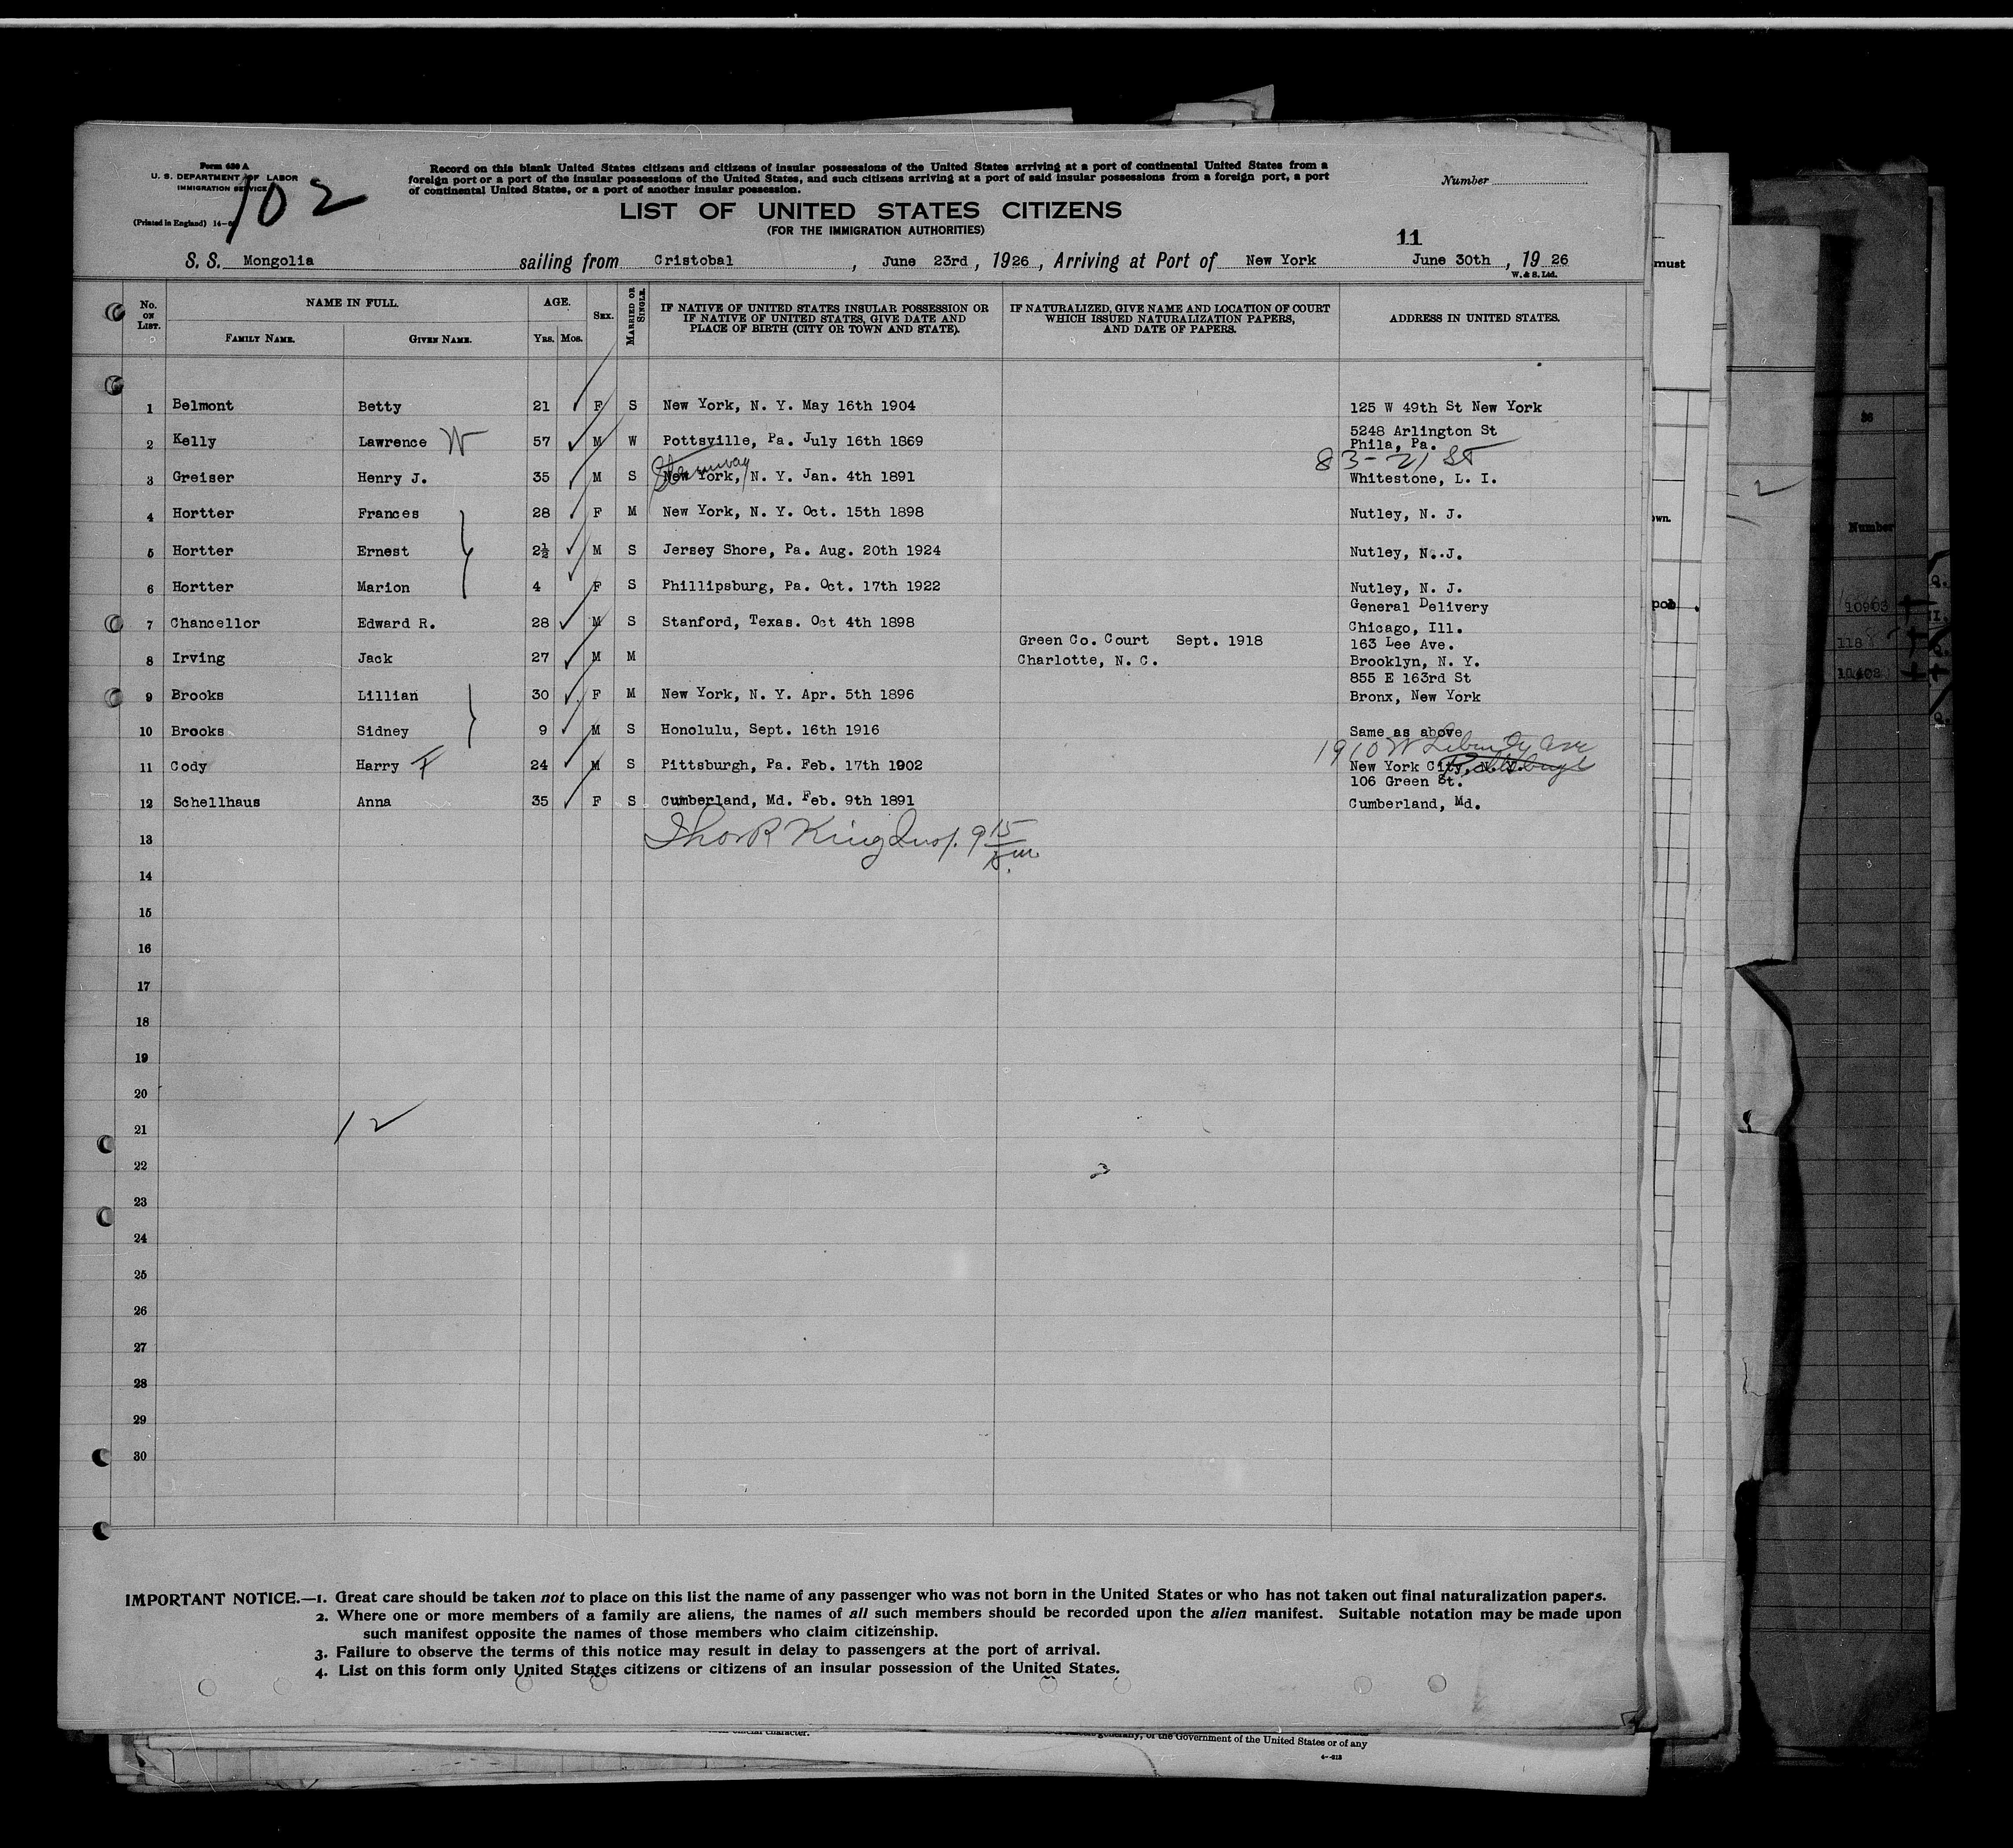 Form 630 A
U. S. DEPARTMENT OF LABOR
IMMIGRATION SERVICE
(Printed in England) 14-6
102
Record on this blank United States citizens and citizens of insular possessions of the United States arriving at a port of continental United States from a
foreign port or a port of the insular possessions of the United States, and such citizens arriving at a port of said insular possessions from a foreign port, a port
of continental United States, or a port of another insular possession.
Number
LIST OF UNITED STATES CITIZENS
(FOR THE IMMIGRATION AUTHORITIES)
11
S. S. Mongolia sailing from Cristobal, June 23rd, 1926, Arriving at Port of New York June 30th, 1926
W. & S. Ltd.
No. ON LIST.
NAME IN FULL.
FAMILY NAME. GIVEN NAME.
AGE.
YRS. MOS.
SEX.
MARRIED OR SINGLE.
IF NATIVE OF UNITED STATES INSULAR POSSESSION OR
IF NATIVE OF UNITED STATES, GIVE DATE AND
PLACE OF BIRTH (CITY OR TOWN AND STATE).
IF NATURALIZED, GIVE NAME AND LOCATION OF COURT
WHICH ISSUED NATURALIZATION PAPERS,
AND DATE OF PAPERS.
ADDRESS IN UNITED STATES.
1 Belmont Betty 21 F S New York, N. Y. May 16th 1904 125 W 49th St New York
2 Kelly Lawrence W 57 M W Pottsville, Pa. July 16th 1869 5248 Arlington St
Phila, Pa.
83-21 St
Steinway
3 Greiser Henry J. 35 M S New York, N. Y. Jan. 4th 1891 Whitestone, L. I.
4 Hortter Frances 28 F M New York, N. Y. Oct. 15th 1898 Nutley, N. J.
5 Hortter Ernest 2½ M S Jersey Shore, Pa. Aug. 20th 1924 Nutley, N. J.
6 Hortter Marion 4 F S Phillipsburg, Pa. Oct. 17th 1922 Nutley, N. J.
General Delivery
7 Chancellor Edward R. 28 M S Stanford, Texas. Oct 4th 1898 Chicago, Ill.
Green Co. Court Sept. 1918 163 Lee Ave.
8 Irving Jack 27 M M Charlotte, N. C. Brooklyn, N. Y.
855 E 163rd St
9 Brooks Lillian 30 F M New York, N. Y. Apr. 5th 1896 Bronx, New York
10 Brooks Sidney 9 M S Honolulu, Sept. 16th 1916 Same as above
1910 W Liberty Ave
Pittsburgh
11 Cody Harry F 24 M S Pittsburgh, Pa. Feb. 17th 1902 New York City, N. Y.
106 Green St.
12 Schellhaus Anna 35 F S Cumberland, Md. Feb. 9th 1891 Cumberland, Md.
13 Thos R King Insp. 9 15
14
15
16
17
18
19
20
21
12
22
23
24
25
26
27
28
29
30
IMPORTANT NOTICE.—1. Great care should be taken not to place on this list the name of any passenger who was not born in the United States or who has not taken out final naturalization papers.
2. Where one or more members of a family are aliens, the names of all such members should be recorded upon the alien manifest. Suitable notation may be made upon
such manifest opposite the names of those members who claim citizenship.
3. Failure to observe the terms of this notice may result in delay to passengers at the port of arrival.
4. List on this form only United States citizens or citizens of an insular possession of the United States.
must
own.
Number
10903
118
10402
official character.
generally, of the Government of the United States or of any